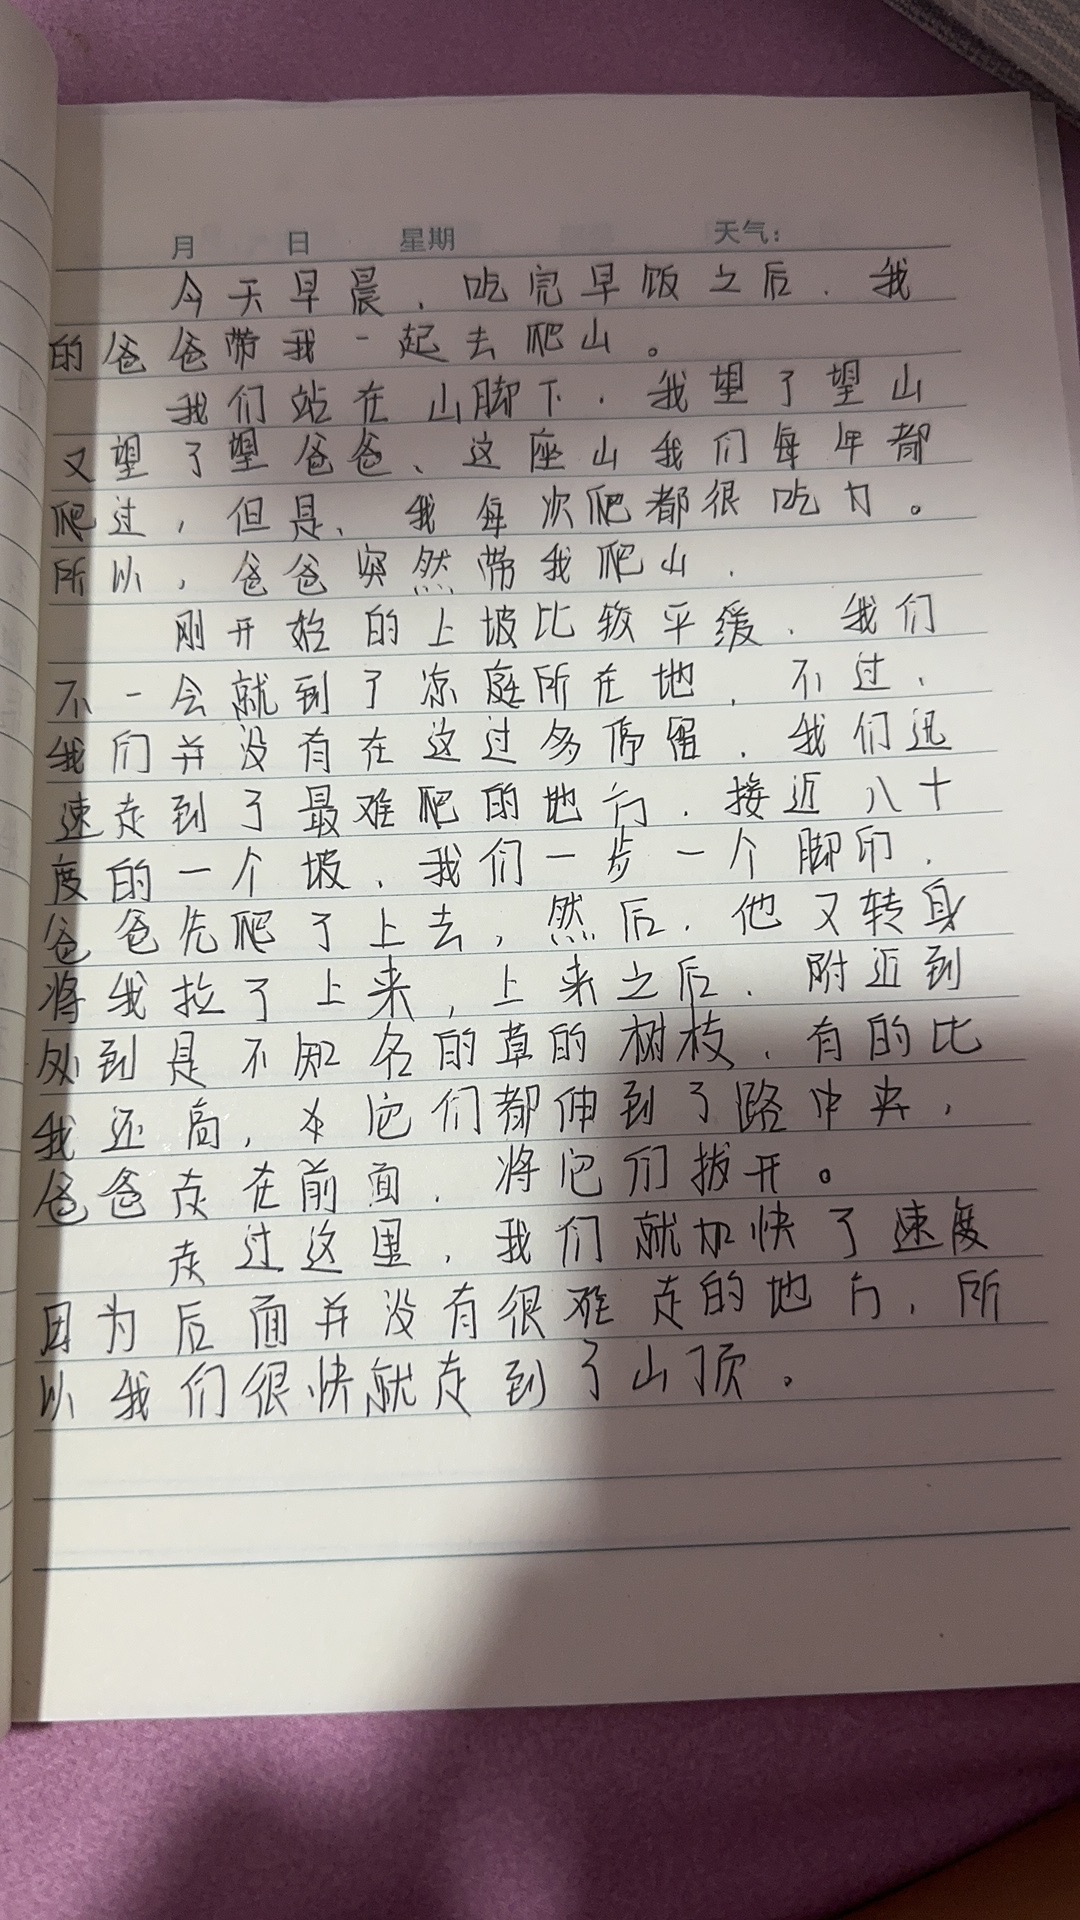 月 日 星期 天气：
今天早晨，吃完早饭之后，我
的爸爸带我一起去爬山。
我们站在山脚下，我望了望山
又望了望爸爸、这座山我们每年都
爬过，但是、我每次爬都很吃力。
所以，爸爸突然带我爬山．
刚开始的上坡比较平缓、我们
不一会就到了凉庭所在地，不过、
我们并没有在这过多停留，我们迅
速走到了最难爬的地方，接近八十
度的一个坡、我们一步一个脚印，
爸爸先爬了上去，然后，他又转身
将我拉了上来，上来之后、附近到
处到是不知名的草的树枝，有的比
我还高，它们都伸到了路中央，
爸爸走在前面，将它们拔开。
走过这里，我们就加快了速度
因为后面并没有很难走的地方，所
以我们很快就走到了山顶。